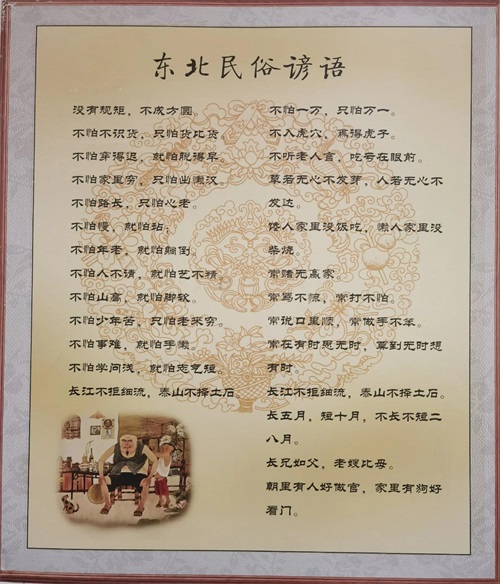 东北民俗谚语
没有规矩，不成方圆。
不怕不识货，只怕货比货
不怕穿得迟，就怕脱得早。
不怕家里穷，只怕出懒汉。
不怕路长，只怕心老。
不怕慢，就怕站；
不怕年老，就怕躺倒。
不怕人不请，就怕艺不精
不怕山高，就怕脚软。
不怕少年苦，只怕老来穷。
不怕事难，就怕手懒。
不怕学问浅，就怕志气短。
长江不拒细流，泰山不择土石
不怕一万，只怕万一。
不入虎穴，焉得虎子。
不听老人言，吃亏在眼前。
草若无心不发芽，人若无心不
发达。
馋人家里没饭吃，懒人家里没
柴烧。
常赌无赢家
常骂不惊，常打不怕。
常说口里顺，常做手不笨。
常在有时思无时，莫到无时想
有时。
长江不拒细流，泰山不择土石。
长五月，短十月，不长不短二
八月。
长兄如父，老嫂比母。
朝里有人好做官，家里有狗好
看门。